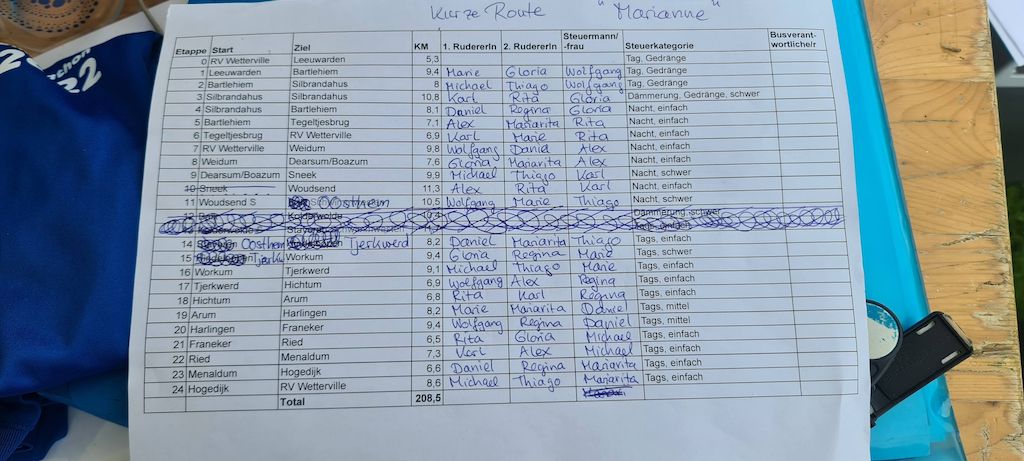 Kurze Route "Marianne"
Etappe Start Ziel KM 1. RudererIn 2. RudererIn Steuermann/-frau Steuerkategorie Busverantwortliche/r
0 RV Wetterville Leeuwarden 5,3 Tag, Gedränge
1 Leeuwarden Bartlehiem 9,4 Marie Gloria Wolfgang Tag, Gedränge
2 Bartlehiem Silbrandahus 8 Michael Thiago Wolfgang Tag, Gedränge
3 Silbrandahus Silbrandahus 10,8 Karl Rita Gloria Dämmerung, Gedränge, schwer
4 Silbrandahus Bartlehiem 8,1 Daniel Regina Gloria Nacht, einfach
5 Bartlehiem Tegeltjesbrug 7,1 Alex Mariarita Rita Nacht, einfach
6 Tegeltjesbrug RV Wetterville 6,9 Karl Marie Rita Nacht, einfach
7 RV Wetterville Weidum 9,8 Wolfgang Daniel Alex Nacht, einfach
8 Weidum Dearsum/Boazum 7,6 Gloria Mariarita Alex Nacht, einfach
9 Dearsum/Boazum Sneek 9,9 Michael Thiago Karl Nacht, schwer
10 Sneek Woudsend 11,3 Alex Rita Karl Nacht, einfach
11 Woudsend S Oosthem 10,5 Wolfgang Marie Thiago Nacht, schwer
12 Kolderwolde 10,4 Dämmerung, schwer
14 Oosthem Tjerkwerd 8,2 Daniel Mariarita Thiago Tags, einfach
15 Tjerkw Workum 9,4 Gloria Regina Marie Tags, schwer
16 Workum Tjerkwerd 9,1 Michael Thiago Marie Tags, einfach
17 Tjerkwerd Hichtum 6,9 Wolfgang Alex Regina Tags, einfach
18 Hichtum Arum 6,8 Rita Karl Regina Tags, einfach
19 Arum Harlingen 8,2 Marie Mariarita Daniel Tags, mittel
20 Harlingen Franeker 9,4 Wolfgang Regina Daniel Tags, mittel
21 Franeker Ried 6,5 Rita Gloria Michael Tags, einfach
22 Ried Menaldum 7,3 Karl Alex Michael Tags, einfach
23 Menaldum Hogedijk 6,6 Daniel Regina Mariarita Tags, einfach
24 Hogedijk RV Wetterville 8,6 Michael Thiago Mariarita Tags, einfach
Total 208,5